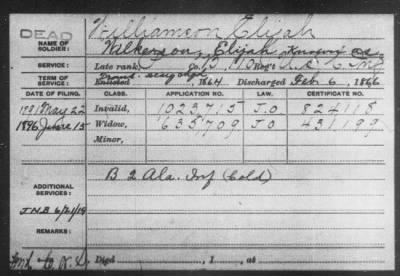 DEAD
Williamson Elijah
NAME OF SOLDIER: Wilkerson, Elijah Known as
SERVICE: Late rank Co. B, 110 Reg't U.S. C. Inf
TERM OF SERVICE: Enlisted 1864 Discharged Feb 6, 1866
DATE OF FILING. CLASS. APPLICATION NO. LAW. CERTIFICATE NO.
1891 May 22 Invalid, 1023715 J.O 824118
1896 June 13 Widow, 635709 J O 431199
Minor,
ADDITIONAL SERVICES: B 2 Ala. Inf (Cold)
JNB 6/21/19
REMARKS:
Died , 1 , at